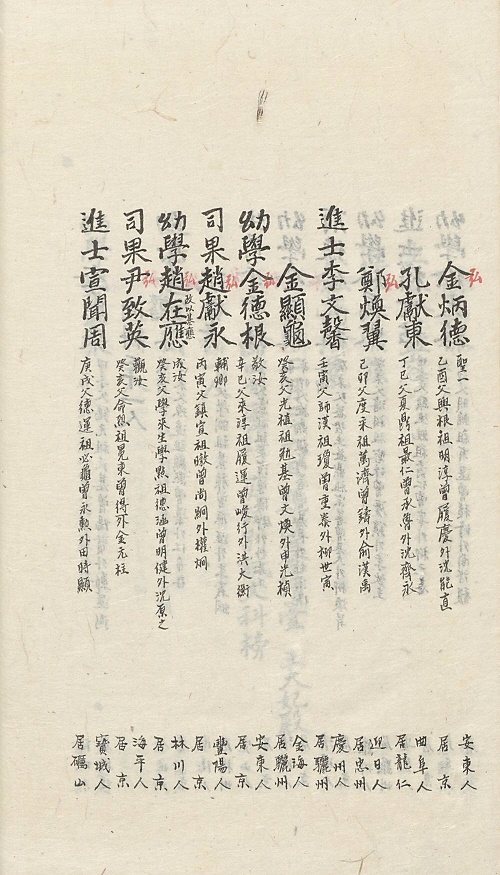 弘
金炳德
聖一
乙酉父興根祖明淳曾履慶外沈能直
安東人
居京
孔獻東
丁巳父夏鼎祖最仁曾承魯外沈齊永
曲阜人
居龍仁
弘
鄭煥翼
己卯父度采祖萬濟曾鏽外俞漢禹
迎日人
居忠州
進士李文馨
壬寅父師漢祖瓊曾重泰外柳世寅
慶州人
居驪州
金顯龜
癸亥父光植祖勉基曾文煥外申光楨
金海人
居驪州
弘
幼學金德根
敬汝
辛巳父來淳祖履運曾峻行外洪大衡
安東人
居京
弘
司果趙獻永
輔卿
丙寅父鎮宣祖曔曾尚絅外權烱
豐陽人
居京
弘
幼學趙在應
改以基應
成汝
癸亥父學來生學點祖德涵曾明健外沈原之
林川人
居京
弘
司果尹致英
觀汝
癸亥父命烈祖冕東曾得外金元柱
海平人
居京
進士宣聞周
庚戌父德運祖必龜曾永勲外田時顯
寶城人
居礪山